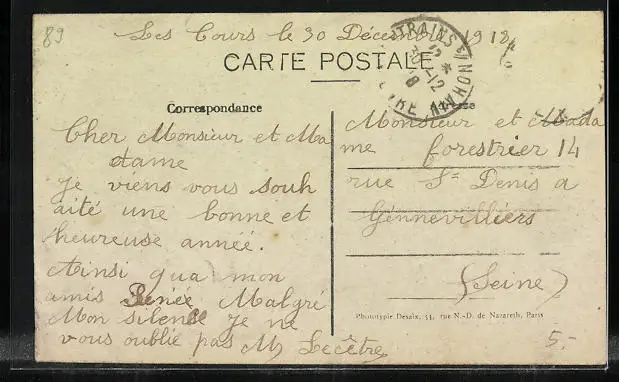 89
Les Cours le 30 Décembre 1918
CARTE POSTALE
Correspondance
Cher Monsieur et Ma
dame
Je viens vous souh
aité une bonne et
heureuse année.
Ainsi qua mon
amis Renée Malgré
Mon silence je ne
vous oublie pas M Lecêtre
Monsieur et Mada
me forestrier 14
rue St Denis a
Génnevilliérs
(Seine)
Phototypie Desaix, 54, rue N.-D. de Nazareth, Paris
5.-